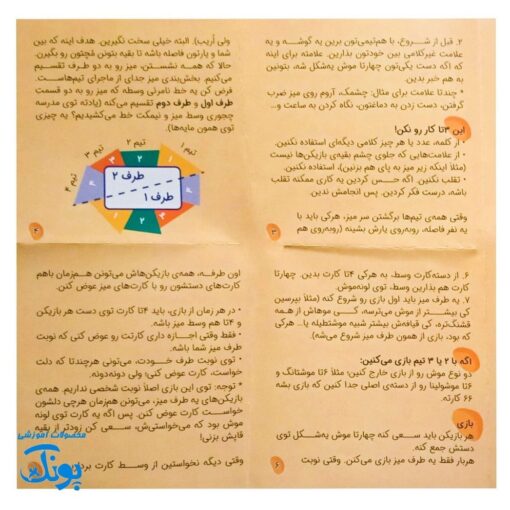 ۲. قبل از شروع، با هم‌تیمی‌تون برین یه گوشه و یه
علامت غیرکلامی بین خودتون بذارین. علامته برای اینه
که اگه دست یکی‌تون چهارتا موش یه‌شکل شد، بتونین
به هم خبر بدین.
* چندتا علامت برای مثال: چشمک، آروم روی میز ضرب
گرفتن، دست زدن به دماغتون، نگاه کردن به ساعت و...
این ۳تا کار رو نکن!
• از کلمه، عدد یا هر چیز کلامی دیگه‌ای استفاده نکنین.
• از علامت‌هایی که جلوی چشم بقیه‌ی بازیکن‌ها نیست
(مثلاً اینکه زیر میز یه پای هم بزنین)، استفاده نکنین.
• تقلب نکنین. اگه حس کردین یه کاری ممکنه تقلب
باشه، درست فکر کردین. پس انجامش ندین.
وقتی همه‌ی تیم‌ها برگشتن سر میز، هرکی باید با
یه نفر فاصله، روبه‌روی یارش بشینه (روبه‌روی هم
۳
ولی اُریب). البته خیلی سخت نگیرین. هدف اینه که بین
شما و یارتون فاصله باشه تا بقیه بتونن مُچتون رو بگیرن.
حالا که همه نشستن، میز رو به دو طرف تقسیم
می‌کنیم. بخش‌بندی میز جدای از ماجرای تیم‌هاست.
فرض کن یه خط نامرئی وسطه که میز رو به دو قسمت
طرف اول و طرف دوم تقسیم می‌کنه (یادته توی مدرسه
چجوری وسط میز و نیمکت خط می‌کشیدیم؟ یه چیزی
توی همون مایه‌ها).
تیم ۱
تیم ۲
تیم ۳
تیم ۴
۱
۲
۳
۴
طرف ۲
طرف ۱
۴
۳
۲
۱
۴
۶. از دسته‌کارت وسط، به هرکی ۴تا کارت بدین. چهارتا
کارت هم بذارین وسط، توی لونه‌موش.
۷. یه طرف میز باید اول بازی رو شروع کنه (مثلاً بپرسین
کی بیشتر از موش می‌ترسه، کی موهاش از همه
قشنگ‌تره، کی قیافه‌ش بیشتر شبیه موشتطیله یا.. هرکی
که بود، بازی از همون طرف میز شروع می‌شه).
اگه با ۲ یا ۳ تیم بازی می‌کنین:
دو نوع موش رو از بازی خارج کنین؛ مثلاً ۶تا موشتانگ و
۶تا موشولینا رو از دسته‌ی اصلی جدا کنین که بازی بشه
۶۶ کارته.
بازی
هر بازیکن باید سعی کنه چهارتا موش یه‌شکل توی
دستش جمع کنه.
هربار فقط یه طرف میز بازی می‌کنن. وقتی نوبت
۶
اون طرفه، همه‌ی بازیکن‌هاش می‌تونن هم‌زمان باهم
کارت‌های دستشون رو با کارت‌های میز عوض کنن.
• در هر زمان از بازی، باید ۴تا کارت توی دست هر بازیکن
و ۴تا هم وسط میز باشه.
• فقط وقتی اجازه داری کارتت رو عوض کنی که نوبت
طرف میز شما باشه.
• توی نوبت طرف خودت، می‌تونی هرچندتا که دلت
خواست، کارت عوض کنی؛ ولی دونه‌دونه.
* توجه: توی این بازی اصلاً نوبت شخصی نداریم. همه‌ی
بازیکن‌های یه طرف میز، می‌تونن هم‌زمان هرچی دلشون
خواست کارت عوض کنن. پس اگه یه کارت توی لونه
موش بود که می‌خواستی‌ش، سعی کن زودتر از بقیه
قاپش بزنی!
وقتی دیگه نخواستین از وسط کارت بردارین
محصولات آموزشی
پونک